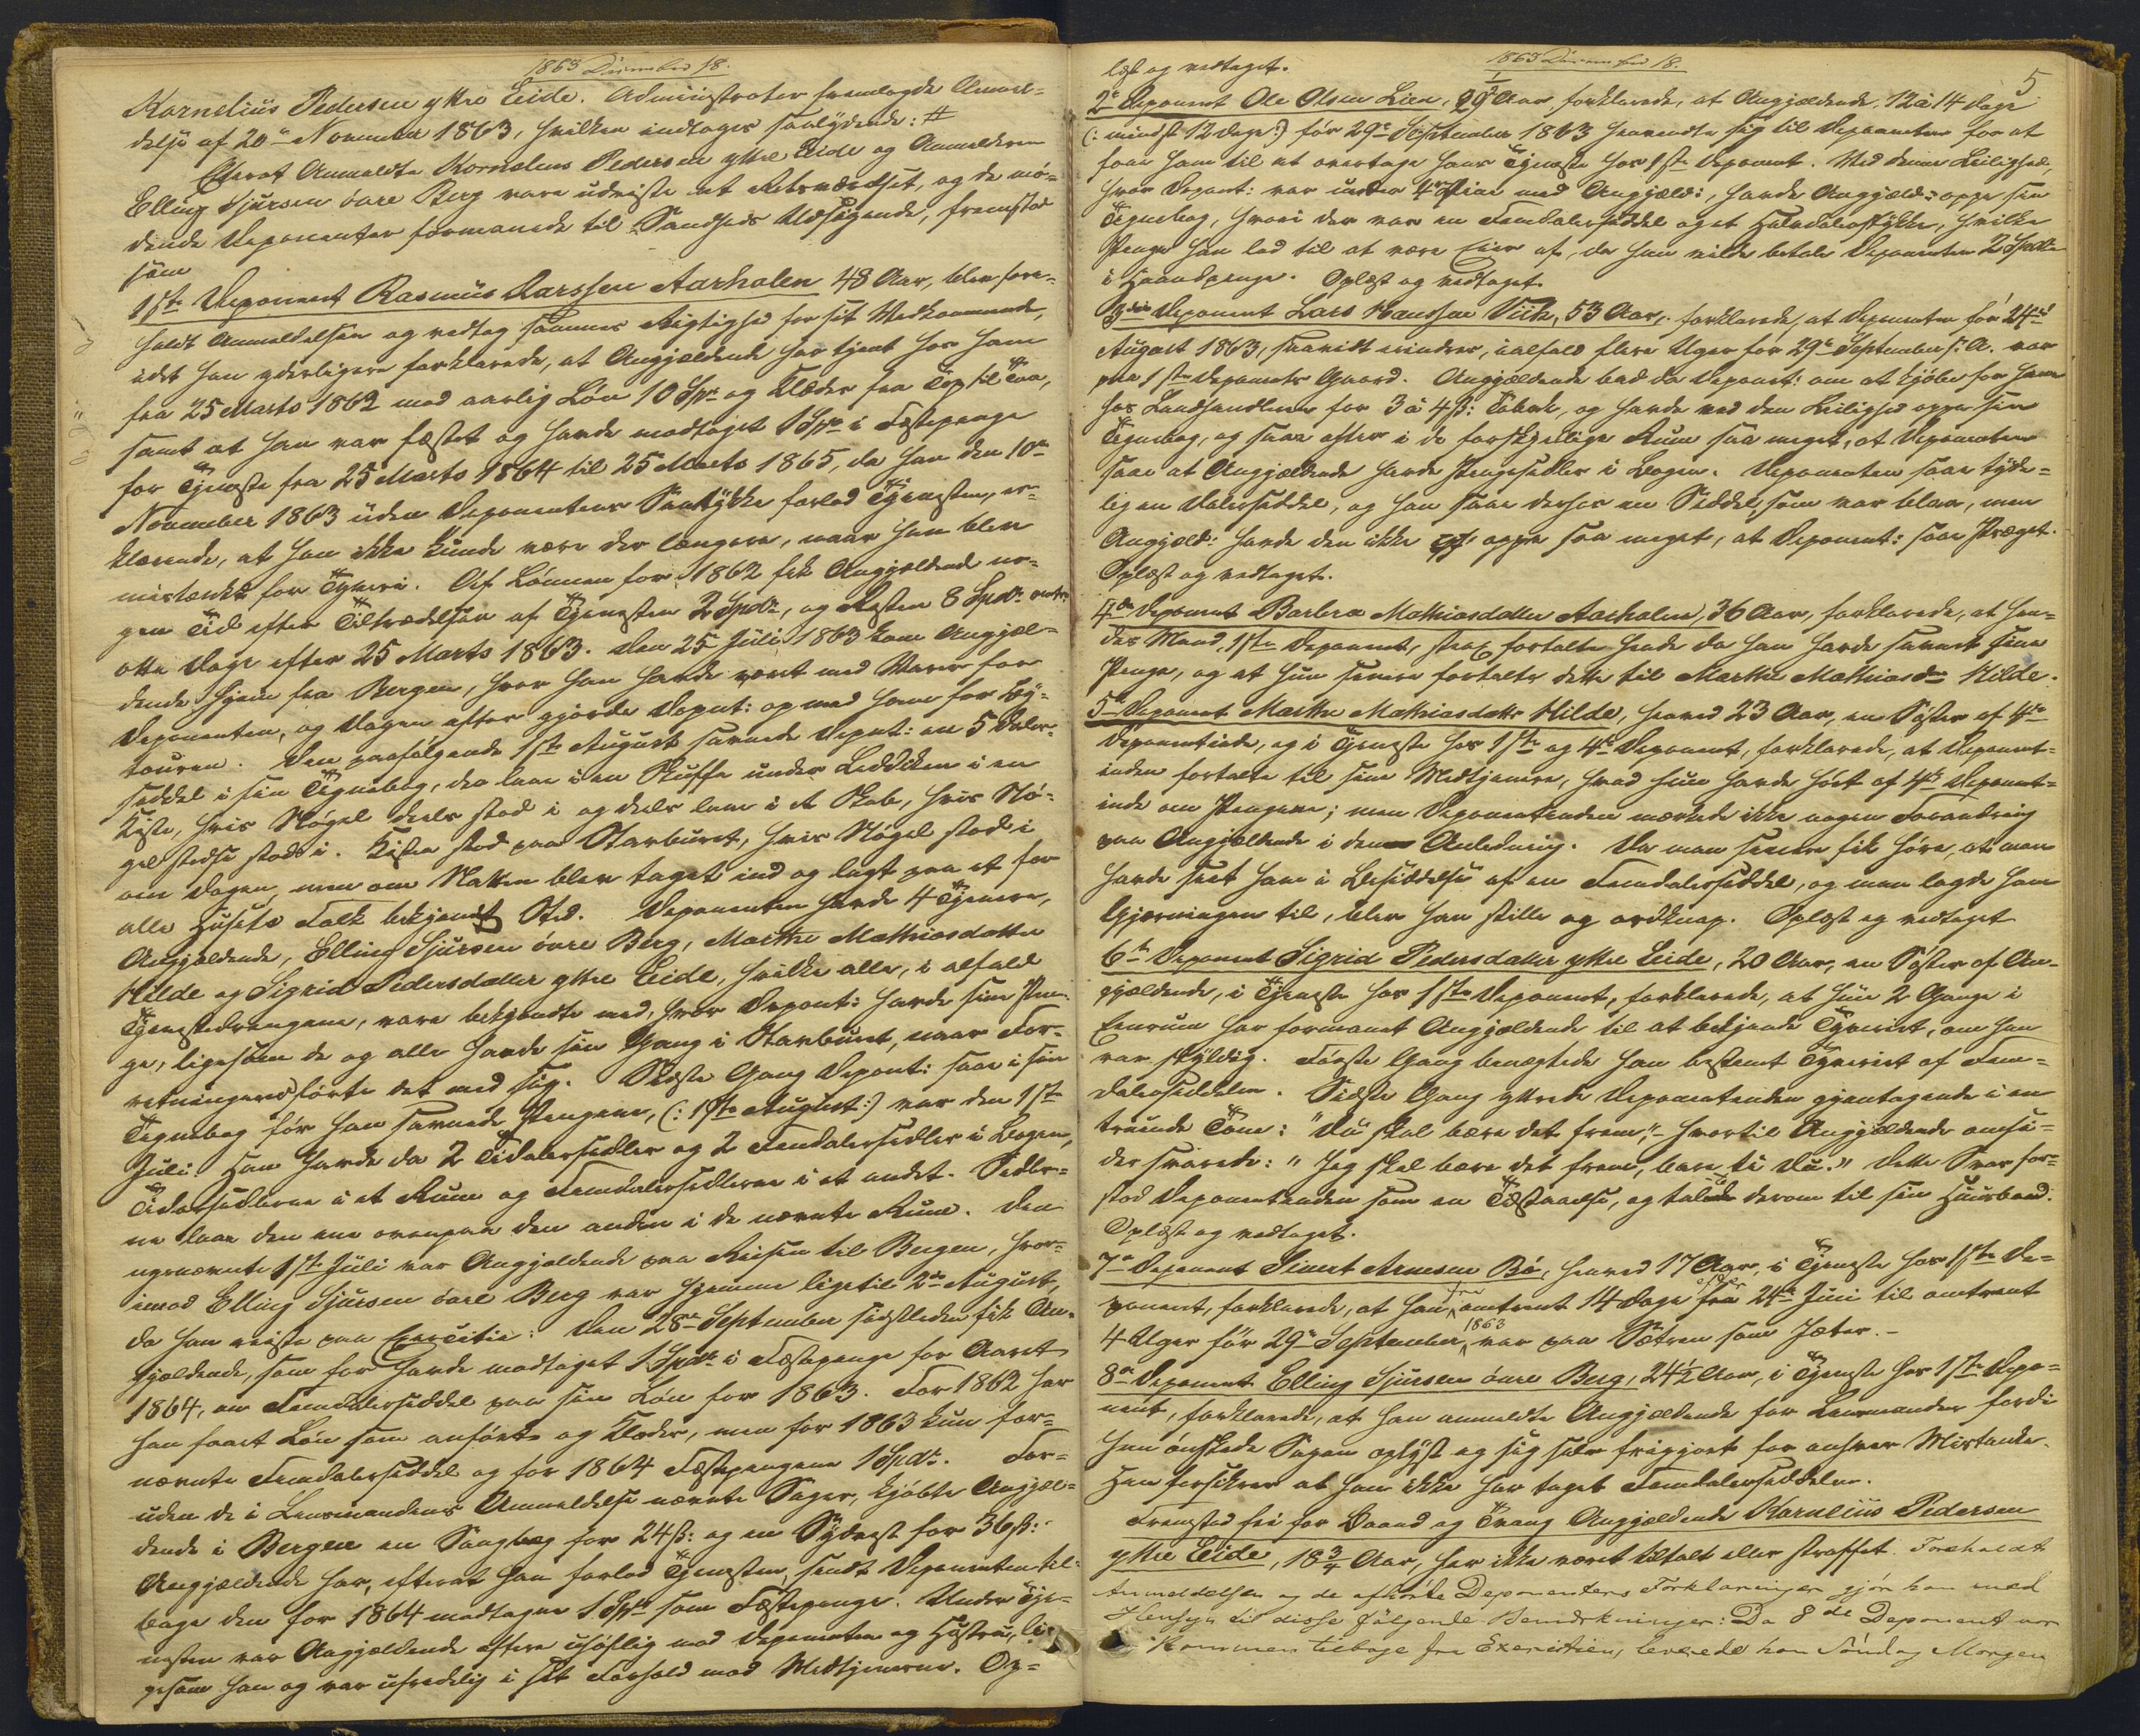 1863 December 18.
Kornelius Pedersen yttre Eide. Administrator fremlagde Anmel-
delse af 20de November 1863, hvilken indtages saalydende: #
Efterat Anmeldte Kornelius Pedersen ytre Eide og Anmelderen
Elling Sjursen övre Berg vare udviste at Retsværelset, og de mö-
dende Deponenter formanede til Sandheds Udsigende, fremstod
som
1ste Deponent Rasmus Larssen Aarhalen 48 Aar, blev fore-
holdt Anmeldelsen og vedtog sammes Rigtighed for sit Vedkommende,
idet han yderligere forklarede, at Angjældende har tjent hos ham
fra 25 Marts 1862 mod aarlig Lön 10 Spd og Klæder fra Top til Taa,
samt at han var fæstet og havde modtaget 1 Spd i Fæstepenge
for Tjeneste fra 25 Marts 1864 til 25 Marts 1865, da han den 10de
November 1863 uden Deponentens Samtykke forlod Tjenesten, er-
klærende, at han ikke kunde være der længere, naar han blev
mistænkt for Tyveri. Af Lönnen for 1862 fik Angjældende no-
gen Tid efter Tiltrædelsen af Tjenesten 2 Spdr, og Resten 8 Spdr
otte Dage efter 25 Marts 1863. Den 25 Juli 1863 kom Angjæl-
dende hjem fra Bergen, hvor han havde været med Varer for
Deponenten, og Dagen efter gjorde Depnt: op med ham for By-
touren. Den paafölgende 1ste August savnede Depnt: en 5 Daler-
seddel i sin Tegnebog, der laae i en Skuffe under Leddiken i en
Kiste, hvis Nögel deels stod i og deels laae i et Skab, hvis Nö-
gel stedse stod i. Kisten stod paa Starburet, hvis Nögel stod i
om Dagen, men om Natten blev taget ind og lagt paa et for
alle Husets Folk bekjendt Sted. Deponenten havde 4 Tjenere,
Angjældende, Elling Sjursen övre Berg, Marthe Mathiasdatter
Hilde og Sigrid Pedersdatter ytre Eide, hvilke alle, i alfald
Tjenestedrengene, vare bekjendte med, hvor Depont: havde sine Pen-
ge, ligesom de og alle havde sin Gang i Starburet, naar For-
retningerne förte det med sig. Sidste Gang Depont: saae i sin
Tegnebog för han savnede Pengene, (: 1ste August:) var den 1ste
Juli. Han havde da 2 Tidalersedler og 2 Femdalersedler i Bogen,
Tidalersedlerne i et Rum og Femdalersedlerne i et andet. Sedler-
ne laae den ene ovenpaa den anden i de nævnte Rum. Den
ngenævnte 1ste Juli var Angjældende paa Reisen til Bergen, hvor-
imod Elling Sjursen övre Berg var hjemme ligetil 2den August,
da han reiste paa Exercitie: Den 28de September sidstleden fik An-
gjældende, som för havde modtaget 1 Spdr i Fæstepenge for Aaret
1864, en Femdalerseddel paa sin Lön for 1863. For 1862 har
han faaet Lön som anfört og Klæder, men for 1863 kun for-
nævnte Femdalerseddel og for 1864 Fæstepengene 1 Spdr. For-
uden de i Lensmandens Anmeldelse nævnte Sager, kjöbte Angjæl-
dende i Bergen en Sangbog for 24 ß: og en Sydvest for 36 ß:
Angjældende har, efterat han forlod Tjenesten, sendt Deponenten til-
bage den for 1864 modtagne 1 Spd som Fæstepenge. Under Tje-
nesten var Angjældende oftere uhöflig mod Deponenten og Hustru, lig-
gesom han og var ufredelig i sit Forhold mod Medtjenerne. Op-
1863 December 18.
5
læst og vedtaget.
2de Deponent Ole Olsen Lien, 29½ Aar, forklarede, at Angjældende 12 à 14 Dage
(: mindst 12 Dage:) för 29de September 1863 henvendte sig til Deponenten for at
faae ham til at overtage hans Tjeneste hos 1ste Deponent. Ved denne Leilighed,
hvor Deponent: var under 4 Öine med Angjæld:, havde Angjæld: oppe sin
Tegnebog, hvori der var en Femdalerseddel og et Halvdalerstykke, hvilke
Penge han lod til at være Eier af, da han vilde betale Deponenten 2 Spdlr
i Haandpenge. Oplæst og vedtaget.
3die Deponent Lars Hanssen Viik, 53 Aar, forklarede, at Deponenten för 24de
August 1863, saavidt erindrer, ialfald flere Uger for 29de September s. A. var
paa 1ste Deponents Gaard. Angjældende bad da Deponent: om at kjöbe for ham
hos Landhandleren for 3 à 4 ß: Tobak, og havde ved den Leilighed oppe sin
Tegnebog, og saae efter i de forskjellige Rum saa meget, at Deponenten
saae at Angjældende havde Pengesedler i Bogen. Deponenten saae tyde-
lig en Dalerseddel, og han saae derhos en Seddel, som var blaa, men
Angjæld: havde den ikke oppe saa meget, at Deponent: saae Præget.
Oplæst og vedtaget.
4de Deponent Barbra Mathiasdatter Aarhalen, 36 Aar, forklarede, at hen-
des Mand, 1ste Deponent, strax fortalte hende da han havde savnet sine
Penge, og at hun senere fortalte dette til Marthe Mathiasdtr Hilde.
5te Deponent Marthe Mathiasdatter Hilde, henved 23 Aar, en Söster af 4de
Deponentinde, og i Tjeneste hos 1ste og 4de Deponent, forklarede, at Deponent-
inden fortalte til sine Medtjenere, hvad hun havde hört af 4de Deponent-
inde om Pengene; men Deponentinden mærkede ikke nogen Forandring
paa Angjældende i den Anledning. Da man senere fik höre, at man
havde seet ham i Besiddelse af en Femdalerseddel, og man lagde ham
Gjerningen til, blev han stille og ordknap. Oplæst og vedtaget
6te Deponent Sigrid Pedersdatter ytre Eide, 20 Aar, en Söster af An-
gjældende, i Tjeneste hos 1ste Deponent, forklarede, at hun 2 Gange i
Eenrum har formanet Angjældende til at bekjende Tyveriet, om han
var skyldig. Förste Gang benægtede han bestemt Tyveriet af Fem-
dalersedlen. Sidste Gang yttrede Deponentinden gjentagende i en
truende Tone: "Du skal bære det frem," – hvortil Angjældende omsi-
der svarede: "Jeg skal bære det frem, bare ti Du." Dette Svar for-
stod Deponentinden som en Tilstaaelse, og talede derom til sin Huusbond.
Oplæst og vedtaget.
7de Deponent Sivert Arnesen Bö, henved 17 Aar, i Tjeneste hos 1ste De-
ponent, forklarede, at han fra omtrent 14 Dage efter 24de Juni til omtrent
4 Uger för 29de September 1863 var paa Sætren som Jæter. –
8de Deponent Elling Sjursen övre Berg, 24½ Aar, i Tjeneste hos 1ste Depo-
nent, forklarede, at han anmeldte Angjældende for Lensmanden fordi
han önskede Sagen oplyst og sig selv frigjort for enhver Mistanke.
Han forsikrer at han ikke har taget Femdalersedlen.
Fremstod fri for Baand og Tvang Angjældende Kornelius Pedersen
ytre Eide, 18¾ Aar, har ikke været tiltalt eller straffet. Foreholdt
Anmeldelsen og de afhörte Deponenters Forklaringer gjör han med
Hensyn til disse fölgende Bemærkninger: Da 8de Deponent var
kommen tilbage fra Exercitien, leverede han Söndag Morgen